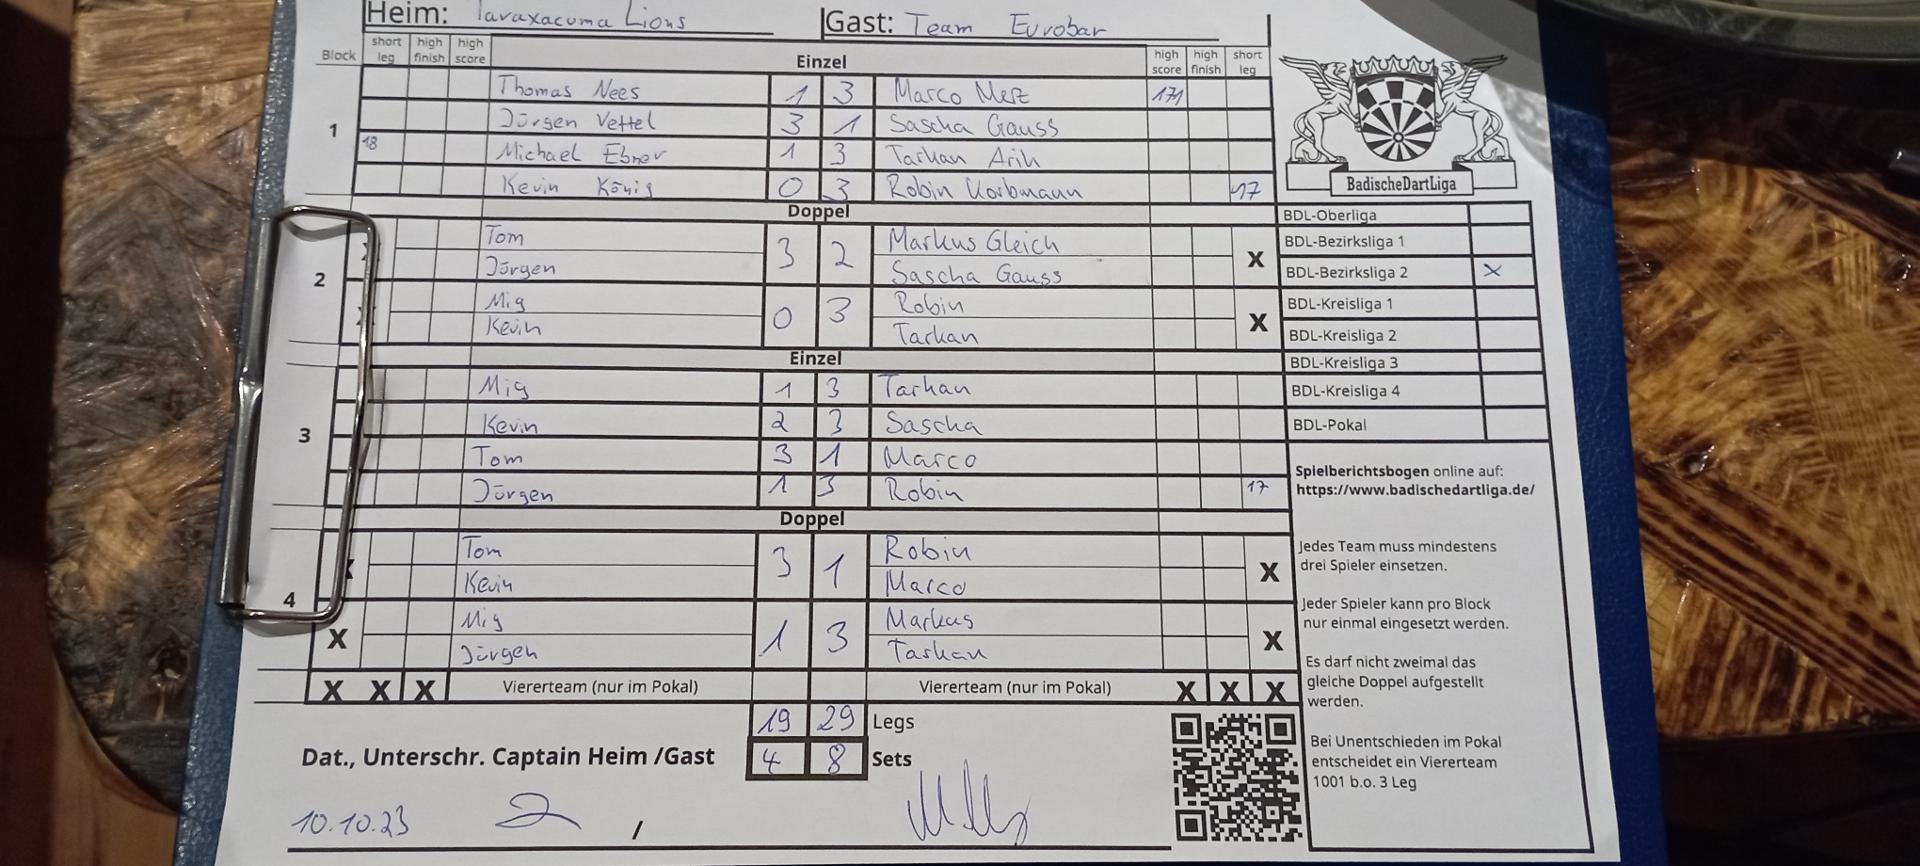 Heim: Taraxacuma Lions Gast: Team Eurobar
Block short leg high finish high score Einzel high score high finish short leg
1
Thomas Nees 1 3 Marco Merz 171
Jürgen Vettel 3 1 Sascha Gauss
18 Michael Ebner 1 3 Tarkan Arik
Kevin König 0 3 Robin Korbmann 17
Doppel
2
Tom 3 2 Markus Gleich X
Jürgen Sascha Gauss
Mig 0 3 Robin X
Kevin Tarkan
Einzel
3
Mig 1 3 Tarkan
Kevin 2 3 Sascha
Tom 3 1 Marco
Jürgen 1 3 Robin 17
Doppel
4
Tom 3 1 Robin X
Kevin Marco
X Mig 1 3 Markus X
Jürgen Tarkan
X X X Viererteam (nur im Pokal) Viererteam (nur im Pokal) X X X
19 29 Legs
Dat., Unterschr. Captain Heim /Gast 4 8 Sets
10.10.23 /
BadischeDartLiga
BDL-Oberliga
BDL-Bezirksliga 1
BDL-Bezirksliga 2 X
BDL-Kreisliga 1
BDL-Kreisliga 2
BDL-Kreisliga 3
BDL-Kreisliga 4
BDL-Pokal
Spielberichtsbogen online auf:
https://www.badischedartliga.de/
Jedes Team muss mindestens
drei Spieler einsetzen.
Jeder Spieler kann pro Block
nur einmal eingesetzt werden.
Es darf nicht zweimal das
gleiche Doppel aufgestellt
werden.
Bei Unentschieden im Pokal
entscheidet ein Viererteam
1001 b.o. 3 Leg